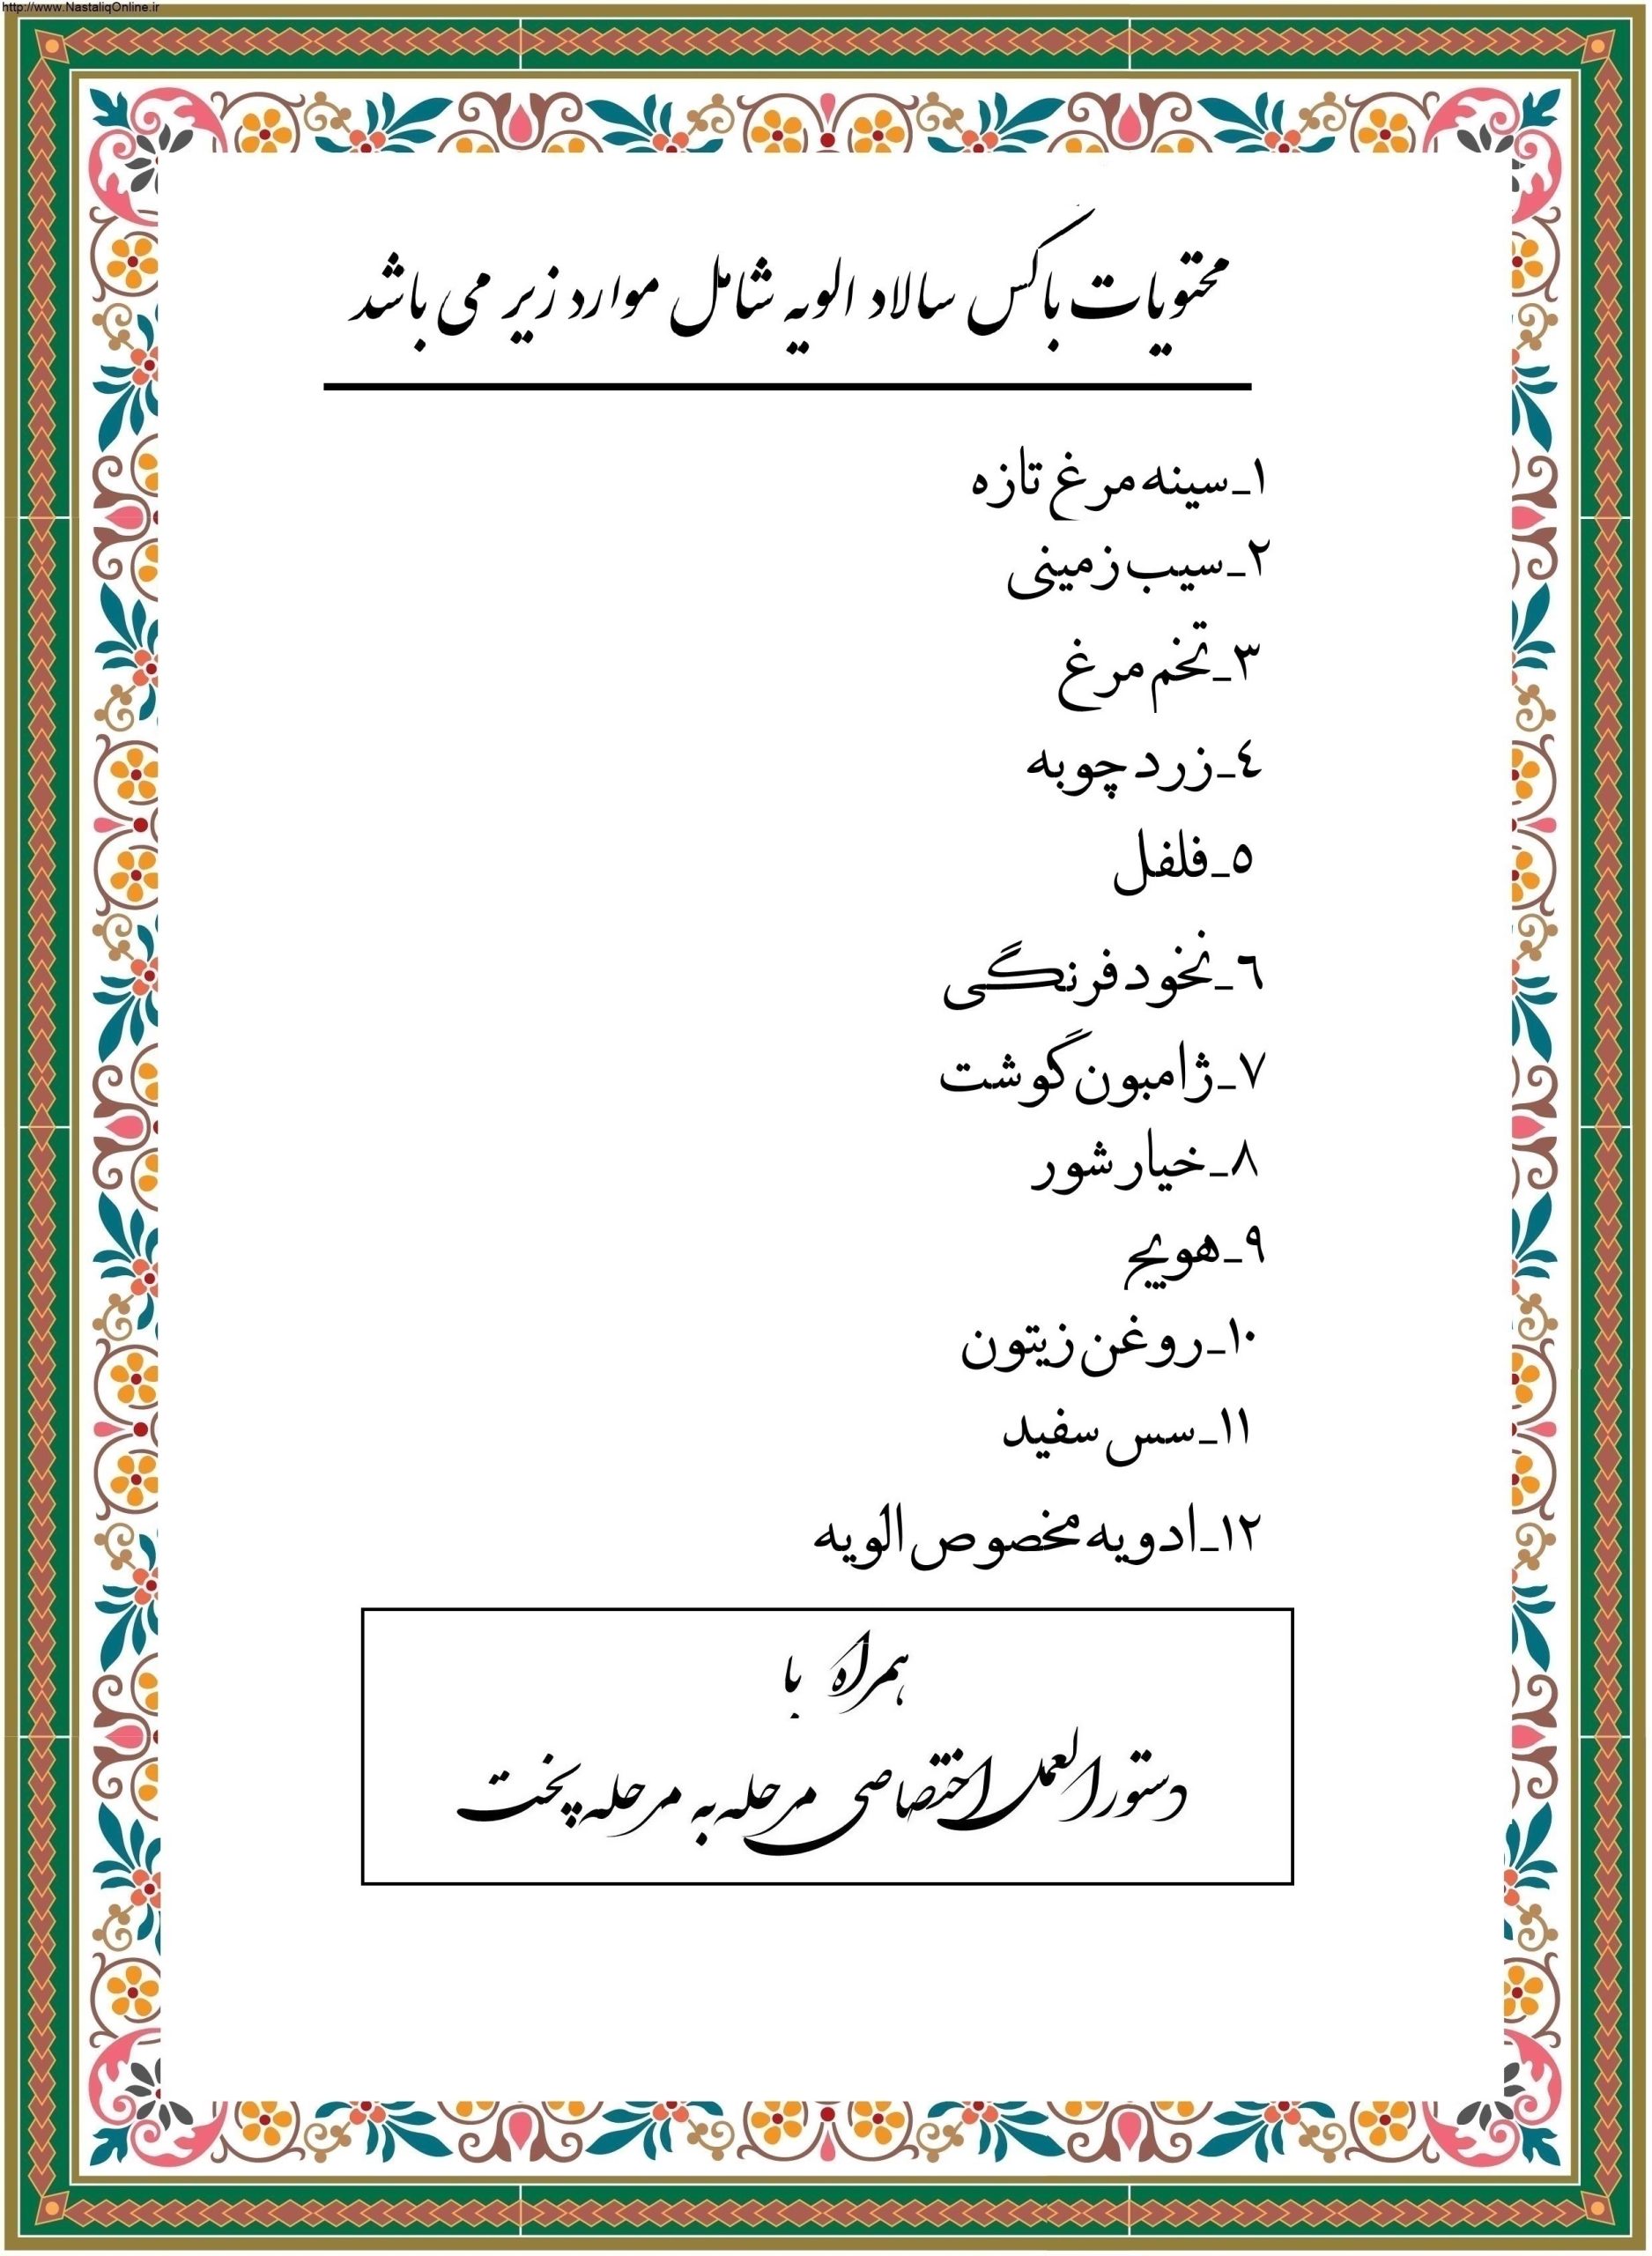 http://www.NastaliqOnline.ir
محتویات باکس سالاد الویه شامل موارد زیر می باشد
١_سینه مرغ تازه
٢_سیب زمینی
٣_تخم مرغ
٤_زرد چوبه
٥_فلفل
٦_نخود فرنگی
٧_ژامبون گوشت
٨_خیار شور
٩_هویج
١٠_روغن زیتون
١١_سس سفید
١٢_ادویه مخصوص الویه
همراه با
دستورالعمل اختصاصی مرحله به مرحله پخت